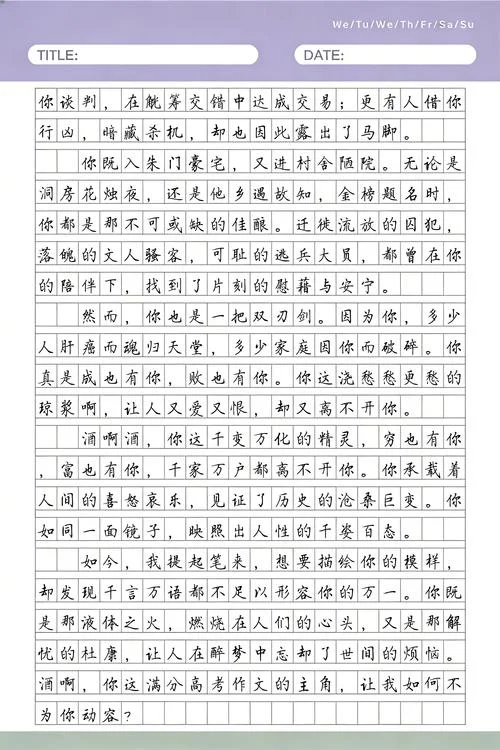 We/Tu/We/Th/Fr/Sa/Su
TITLE:
DATE:
你谈判，在觥筹交错中达成交易；更有人借你
行凶，暗藏杀机，却也因此露出了马脚。
你既入朱门豪宅，又进村舍陋院。无论是
洞房花烛夜，还是他乡遇故知，金榜题名时，
你都是那不可或缺的佳酿。迁徙流放的囚犯，
落魄的文人骚客，可耻的逃兵大员，都曾在你
的陪伴下，找到了片刻的慰藉与安宁。
然而，你也是一把双刃剑。因为你，多少
人肝癌而魂归天堂，多少家庭因你而破碎。你
真是成也有你，败也有你。你这浇愁愁更愁的
琼浆啊，让人又爱又恨，却又离不开你。
酒啊酒，你这千变万化的精灵，穷也有你
，富也有你，千家万户都离不开你。你承载着
人间的喜怒哀乐，见证了历史的沧桑巨变。你
如同一面镜子，映照出人性的千姿百态。
如今，我提起笔来，想要描绘你的模样，
却发现千言万语都不足以形容你的万一。你既
是那液体之火，燃烧在人们的心头，又是那解
忧的杜康，让人在醉梦中忘却了世间的烦恼。
酒啊，你这满分高考作文的主角，让我如何不
为你动容？